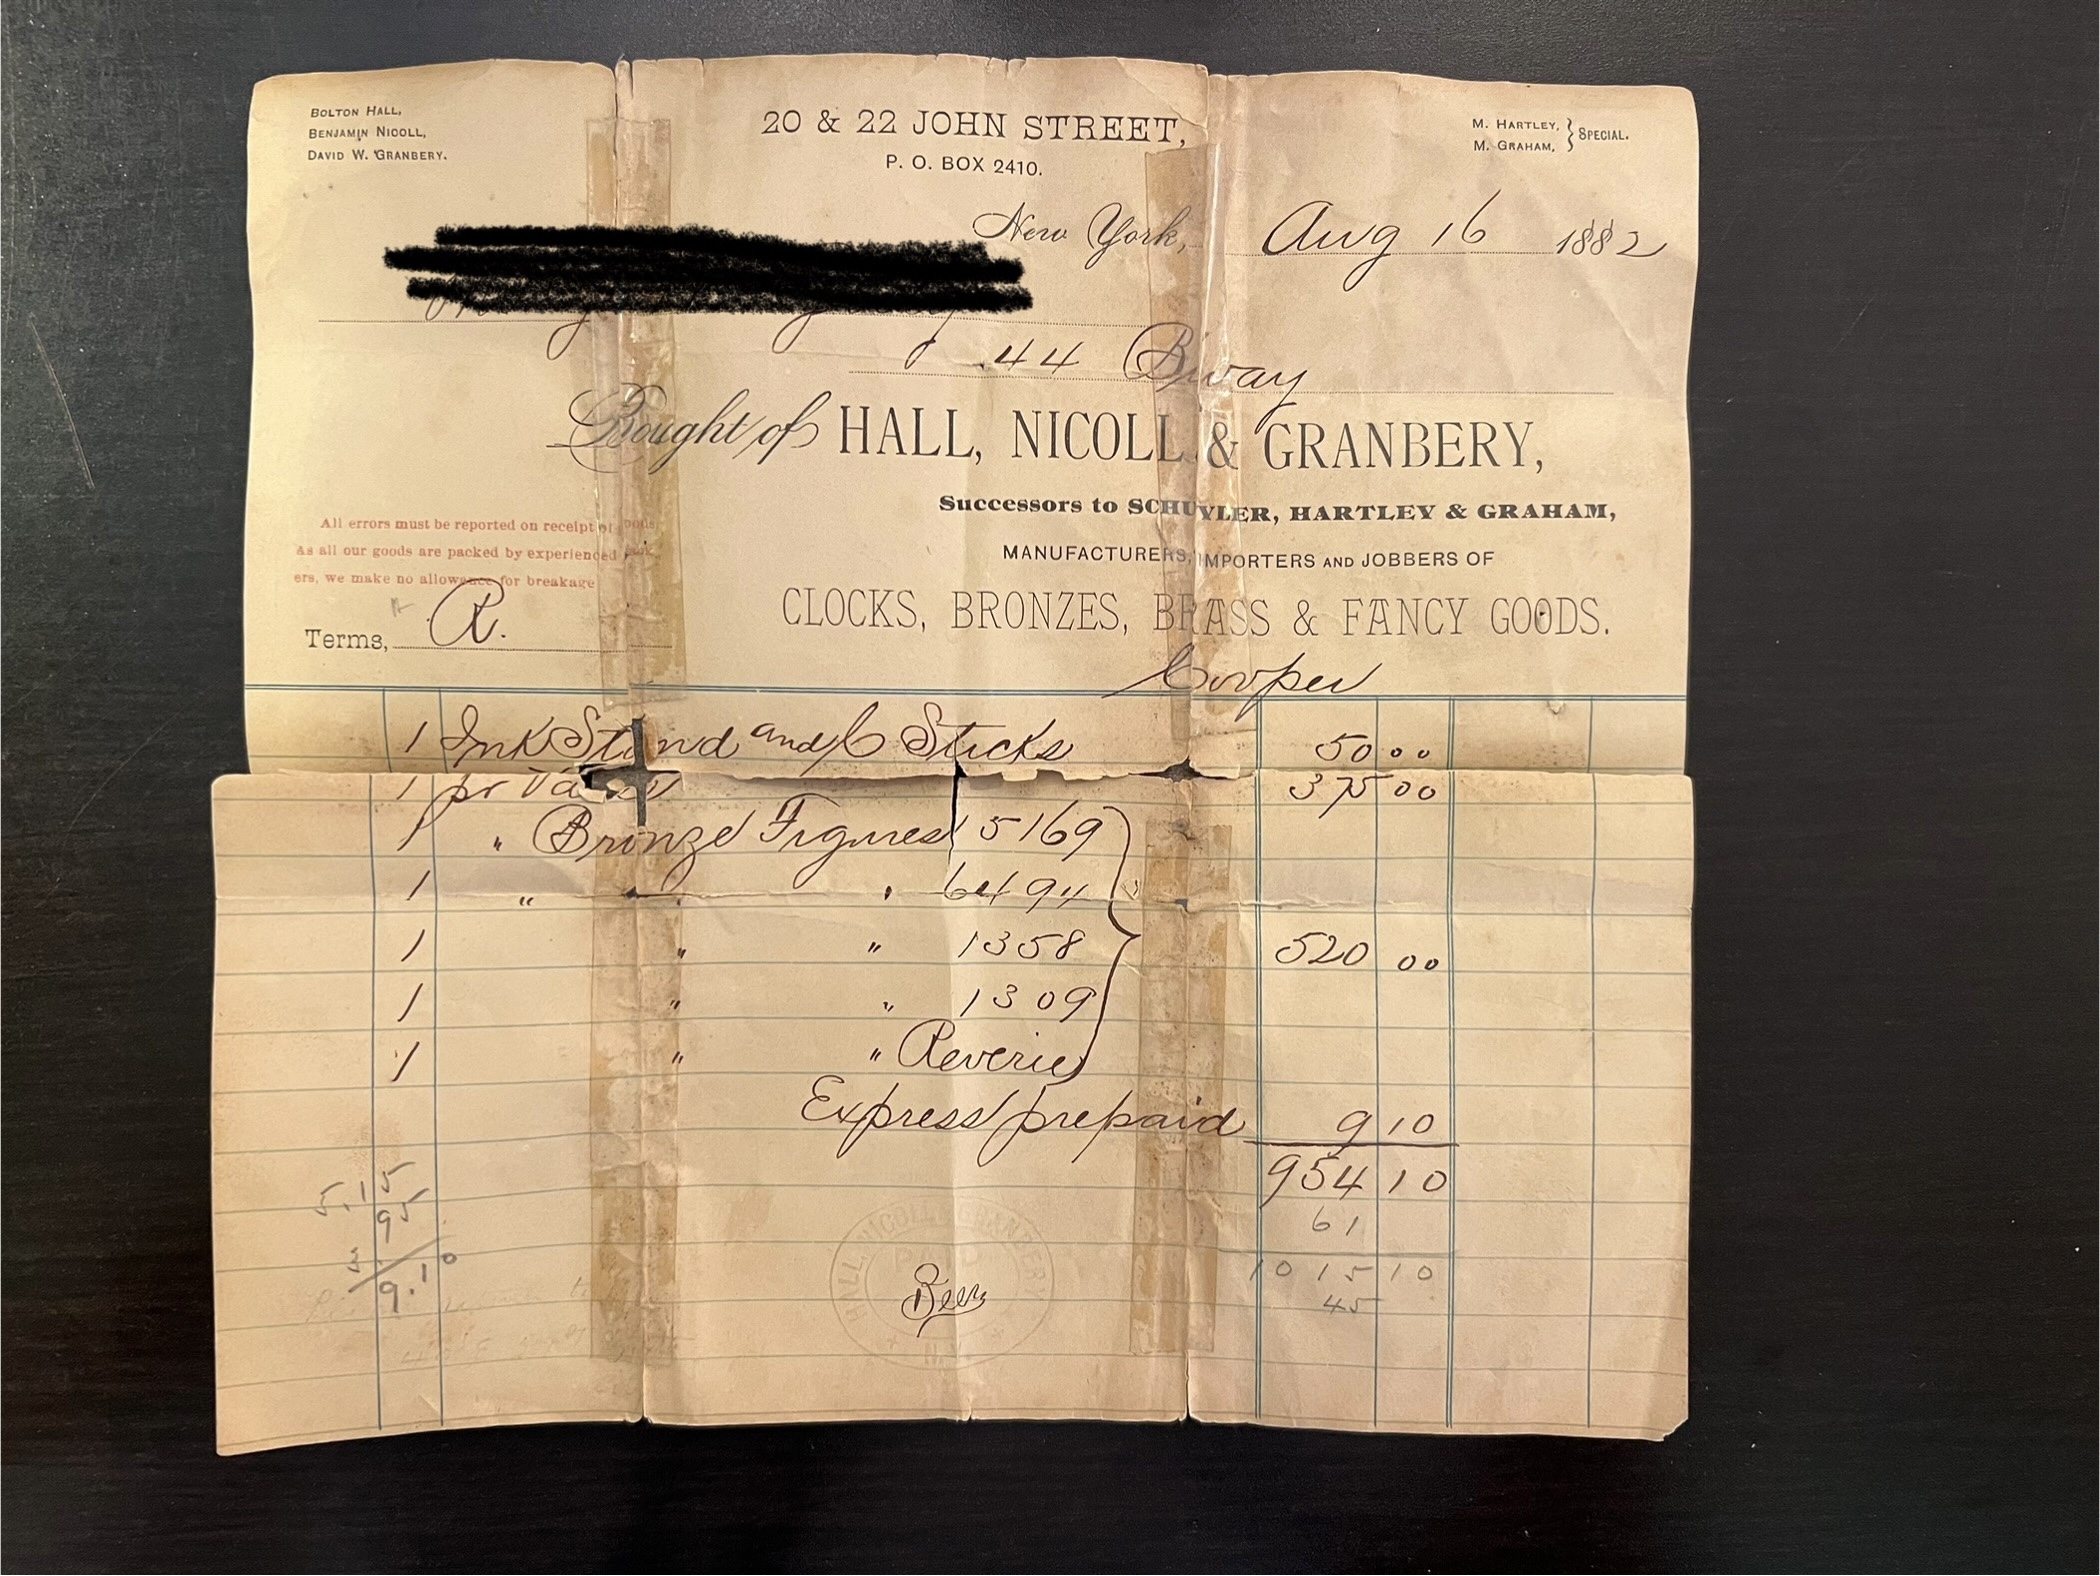 BOLTON HALL,
BENJAMIN NICOLL,
DAVID W. GRANBERY.
20 & 22 JOHN STREET,
P. O. BOX 2410.
M. HARTLEY,
M. GRAHAM, } SPECIAL.
New York, Aug 16 1882
44 Bway
Bought of HALL, NICOLL & GRANBERY,
Successors to SCHUYLER, HARTLEY & GRAHAM,
MANUFACTURERS, IMPORTERS AND JOBBERS OF
CLOCKS, BRONZES, BRASS & FANCY GOODS.
All errors must be reported on receipt of goods
As all our goods are packed by experienced pack
ers, we make no allowance for breakage
Terms, R.
Cooper
1 Ink Stand and C Sticks 50 00
1 pr Vases 375 00
1 " Bronze Figures 15169
1 " " " 6494
1 " " 1358 520 00
1 " " 1309
1 " " Reverie
Express prepaid 9 10
954 10
61
1015 10
45
5.15
95
9.10
HALL NICOLL & GRANBERY
PAID
N.Y.